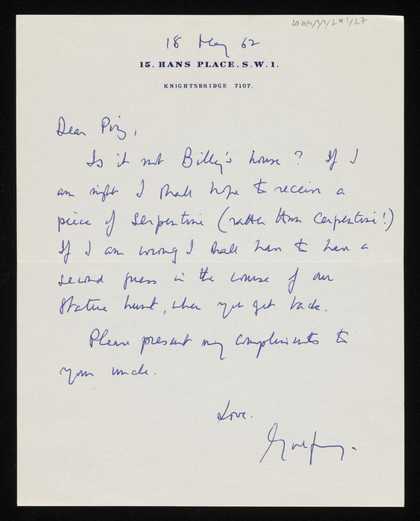 18 May 62
15. HANS PLACE. S.W.1.
KNIGHTSBRIDGE 7107.
Dear
Is it not Billy's house? If I
am right I shall hope to receive a
piece of Serpentine (rather than Carpentine!)
If I am wrong I shall have to have a
second guess in the course of our
statue hunt, when you get back.
Please present my compliments to
your uncle.
Love.